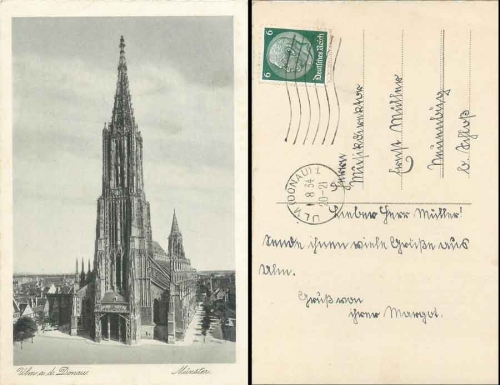 Ulm a. d. Donau
Münster.
6
6
Deutsches Reich
ULM (DONAU) 1
8 34
20-21
Herrn
Musikdirektor
Ernst Müller
Neuenbürg
b. Schloß
Lieber Herr Müller!
Sende ihnen viele Grüße aus
Ulm.
Gruß von
ihrer Margot.